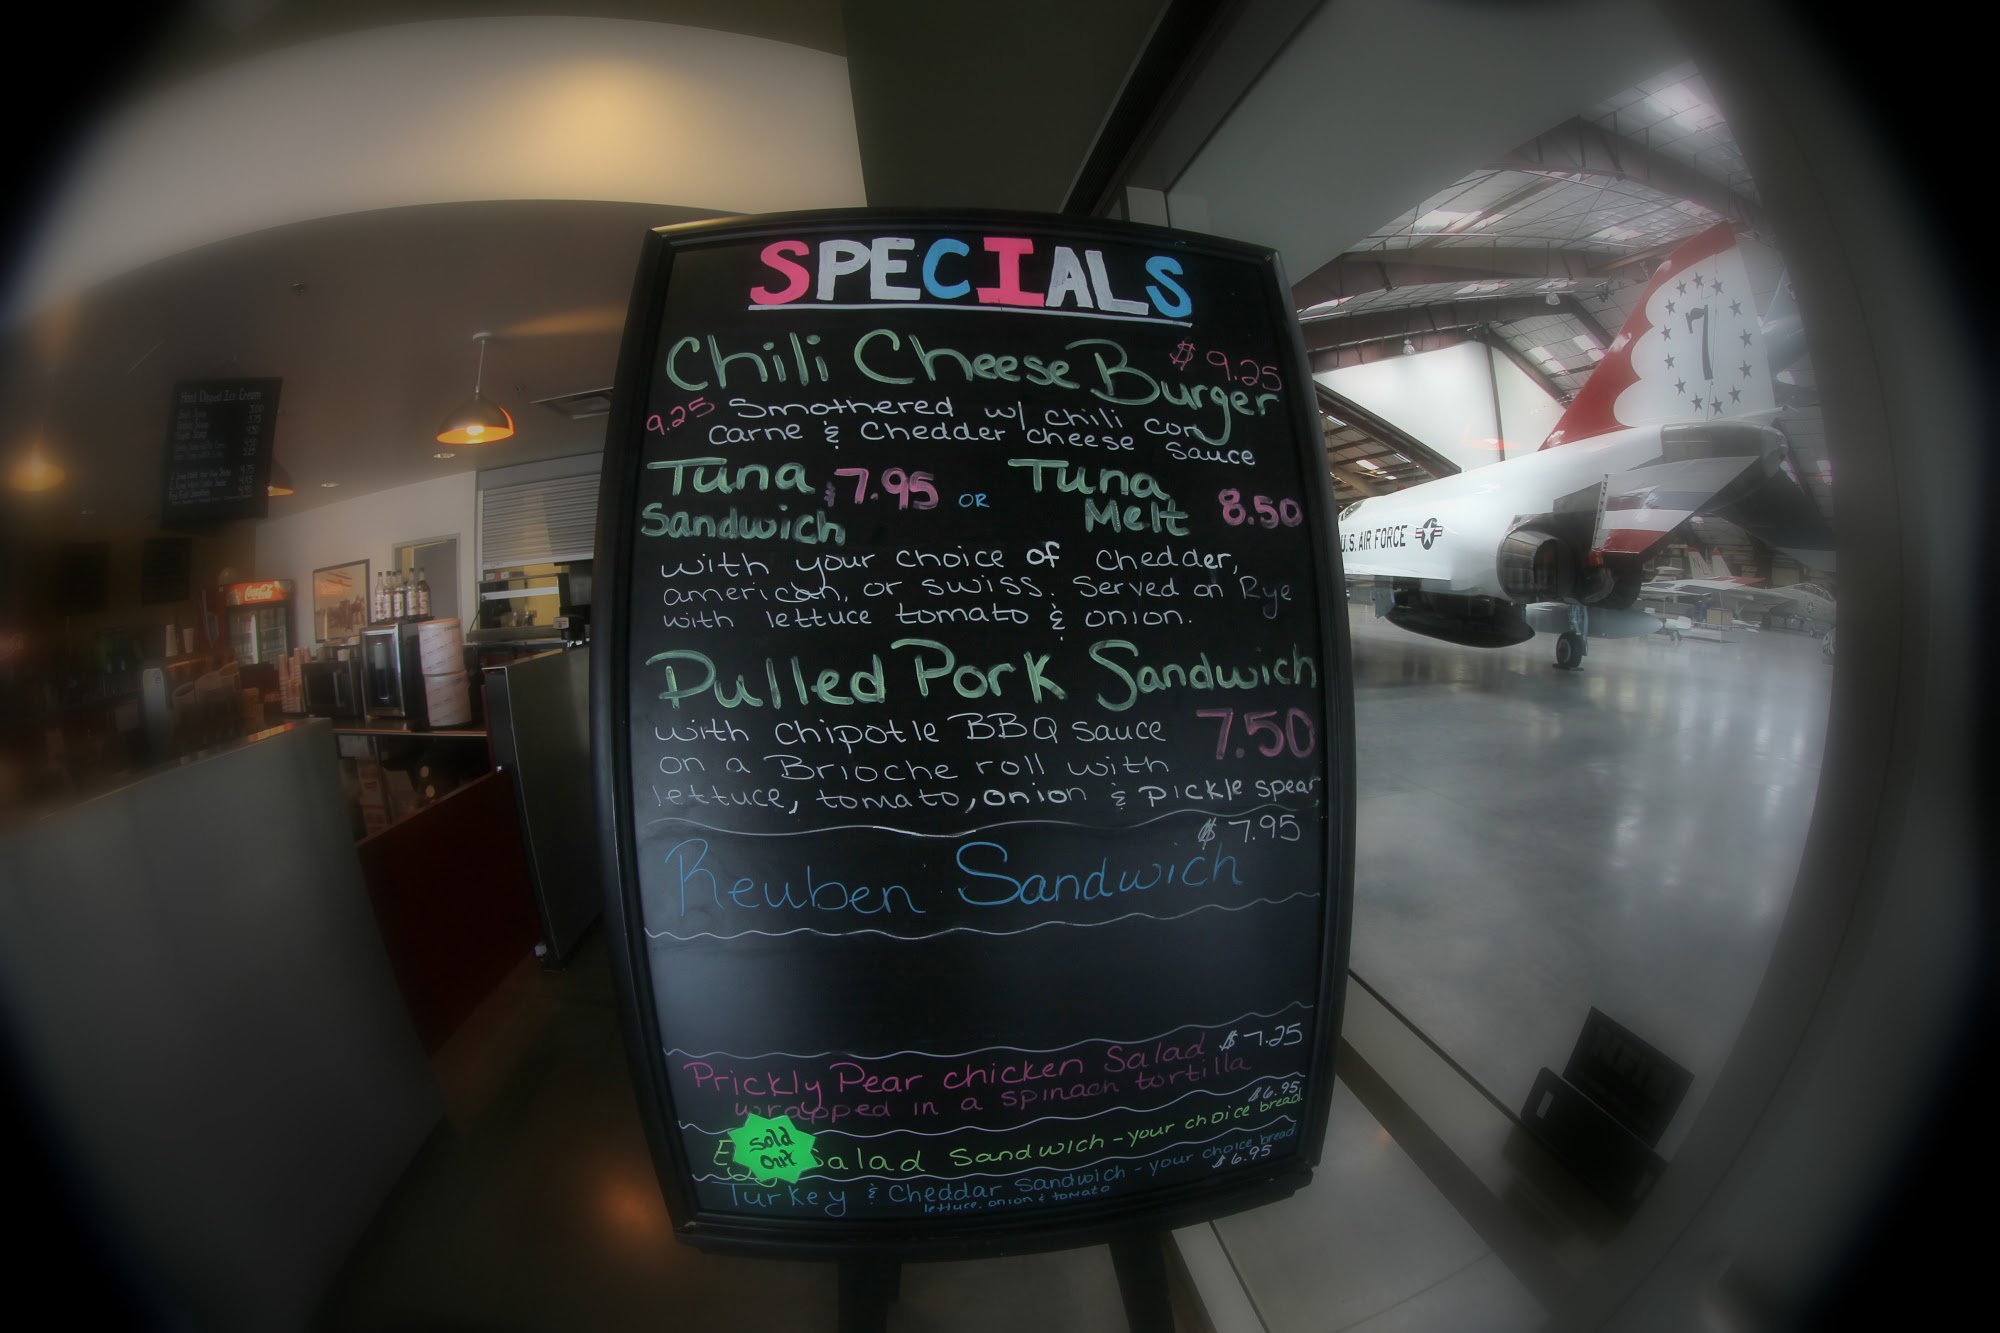 SPECIALS
Chili Cheese Burger $ 9.25
9.25 Smothered w/ chili con
Carne & Chedder cheese Sauce
Tuna Sandwich $7.95 OR Tuna Melt 8.50
with your choice of chedder,
american, or swiss. Served on Rye
with lettuce tomato & onion.
Pulled Pork Sandwich
with chipotle BBQ sauce 7.50
on a Brioche roll with
lettuce, tomato, onion & pickle spear
$ 7.95
Reuben Sandwich
Prickly Pear chicken Salad $ 7.25
wrapped in a spinach tortilla
$6.95
Salad Sandwich - your choice bread
Sold
Out
Turkey & Cheddar Sandwich - your choice bread
$6.95
lettuce, onion & tomato
Hand Dipped Ice Cream
Coca-Cola
7
U.S. AIR FORCE